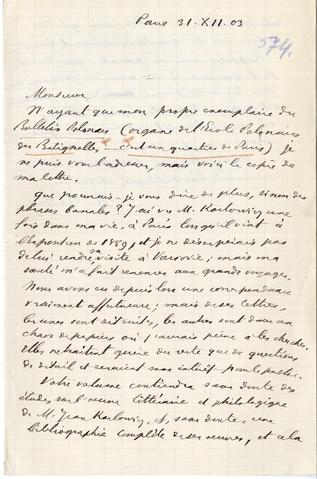 Paris 31.XII.03
574.
Monsieur,
N'ayant que mon propre exemplaire du
Bulletin Polonais (organe de l'Ecole Polonaise
des Batignolles, — c'est un quartier de Paris) je
ne puis vous l'adresser, mais voici la copie de
ma lettre.
Que pourrais-je vous dire de plus, sinon des
phrases banales? J'ai vu M. Karlowicz une
fois dans ma vie, à Paris lorsqu'il vint à
l'exposition de 1889, et je ne désespérais pas
de lui rendre sa visite à Varsovie; mais ma
santé m'a fait renoncer aux grands voyages.
Nous avons eu depuis lors une correspondance
vraiment affectueuse; mais de ses lettres,
les unes sont détruites, les autres sont dans un
chaos de papiers où j'aurais peine à les chercher.
Elles ne traitent guère du reste que de questions
de détail et seraient sans intérêt pour le public.
Votre volume contiendra sans doute des
études sur l'œuvre littéraire et philologique
de M. Jean Karlowicz, et, sans doute, une
bibliographie complète de ses œuvres, et cela